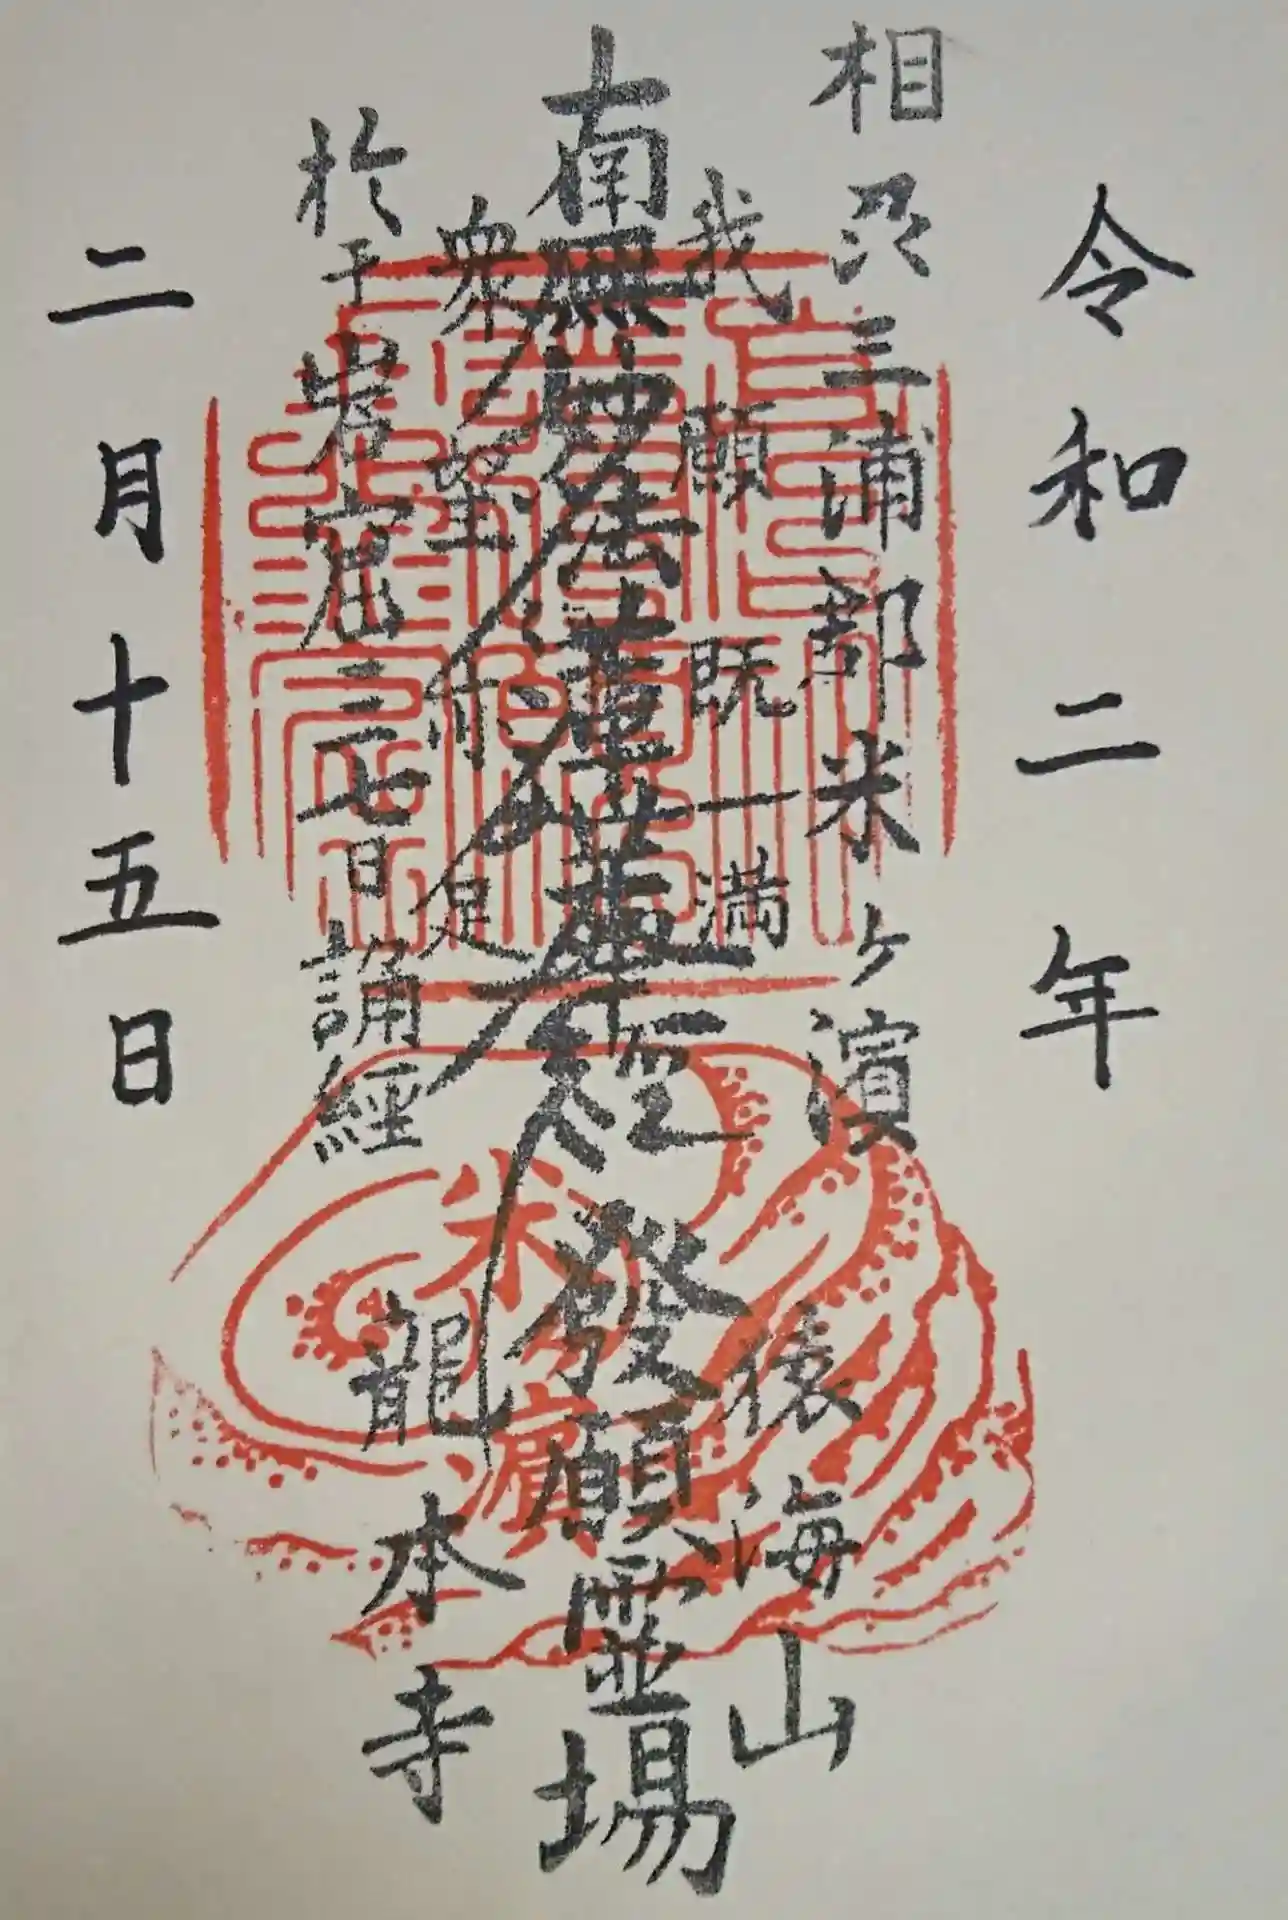 令和二年
相州三浦郡米ヶ濱
我願既満
猿海山
南無妙法蓮華経
發願靈場
衆望亦足
於于岩窟三七日誦經
龍本寺
二月十五日
米
濱